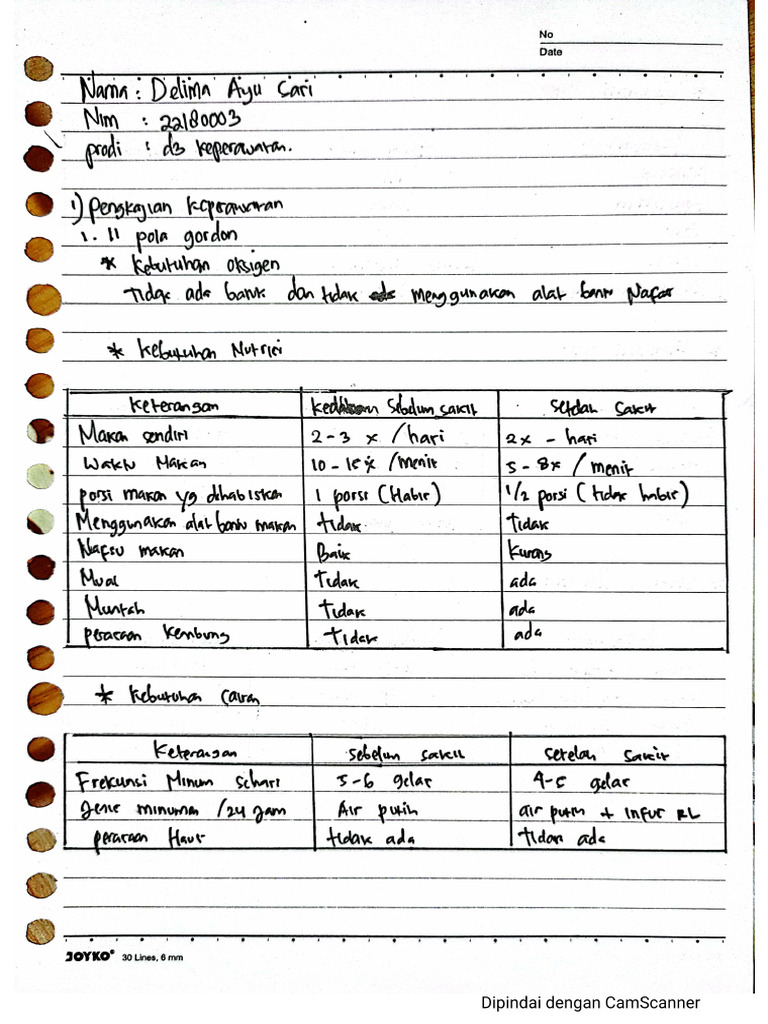 No
Date
Nama : Delima Ayu Sari
Nim : 22180003
prodi : d3 keperawatan.
1) pengkajian keperawatan
1. 11 pola gordon
* kebutuhan oksigen
tidak ada batuk dan tidak menggunakan alat bantu Nafas
* kebutuhan Nutrisi
keterangan sebelum sakit setelah sakit
Makan sendiri 2 - 3 x /hari 2x - hari
Waktu Makan 10 - 15x /menit 5 - 8x /menit
porsi makan yg dihabiskan 1 porsi (Habis) 1/2 porsi (tidak habis)
Menggunakan alat bantu makan tidak tidak
Nafsu makan Baik kurang
Mual tidak ada
Muntah tidak ada
perasaan kembung tidak ada
* kebutuhan Cairan
keterangan sebelum sakit setelah sakit
Frekunsi Minum Sehari 5-6 gelas 4-5 gelas
Jenis minuman /24 Jam Air putih air putih + infus RL
perasaan Haus tidak ada tidak ada
JOYKO® 30 Lines, 6 mm
Dipindai dengan CamScanner